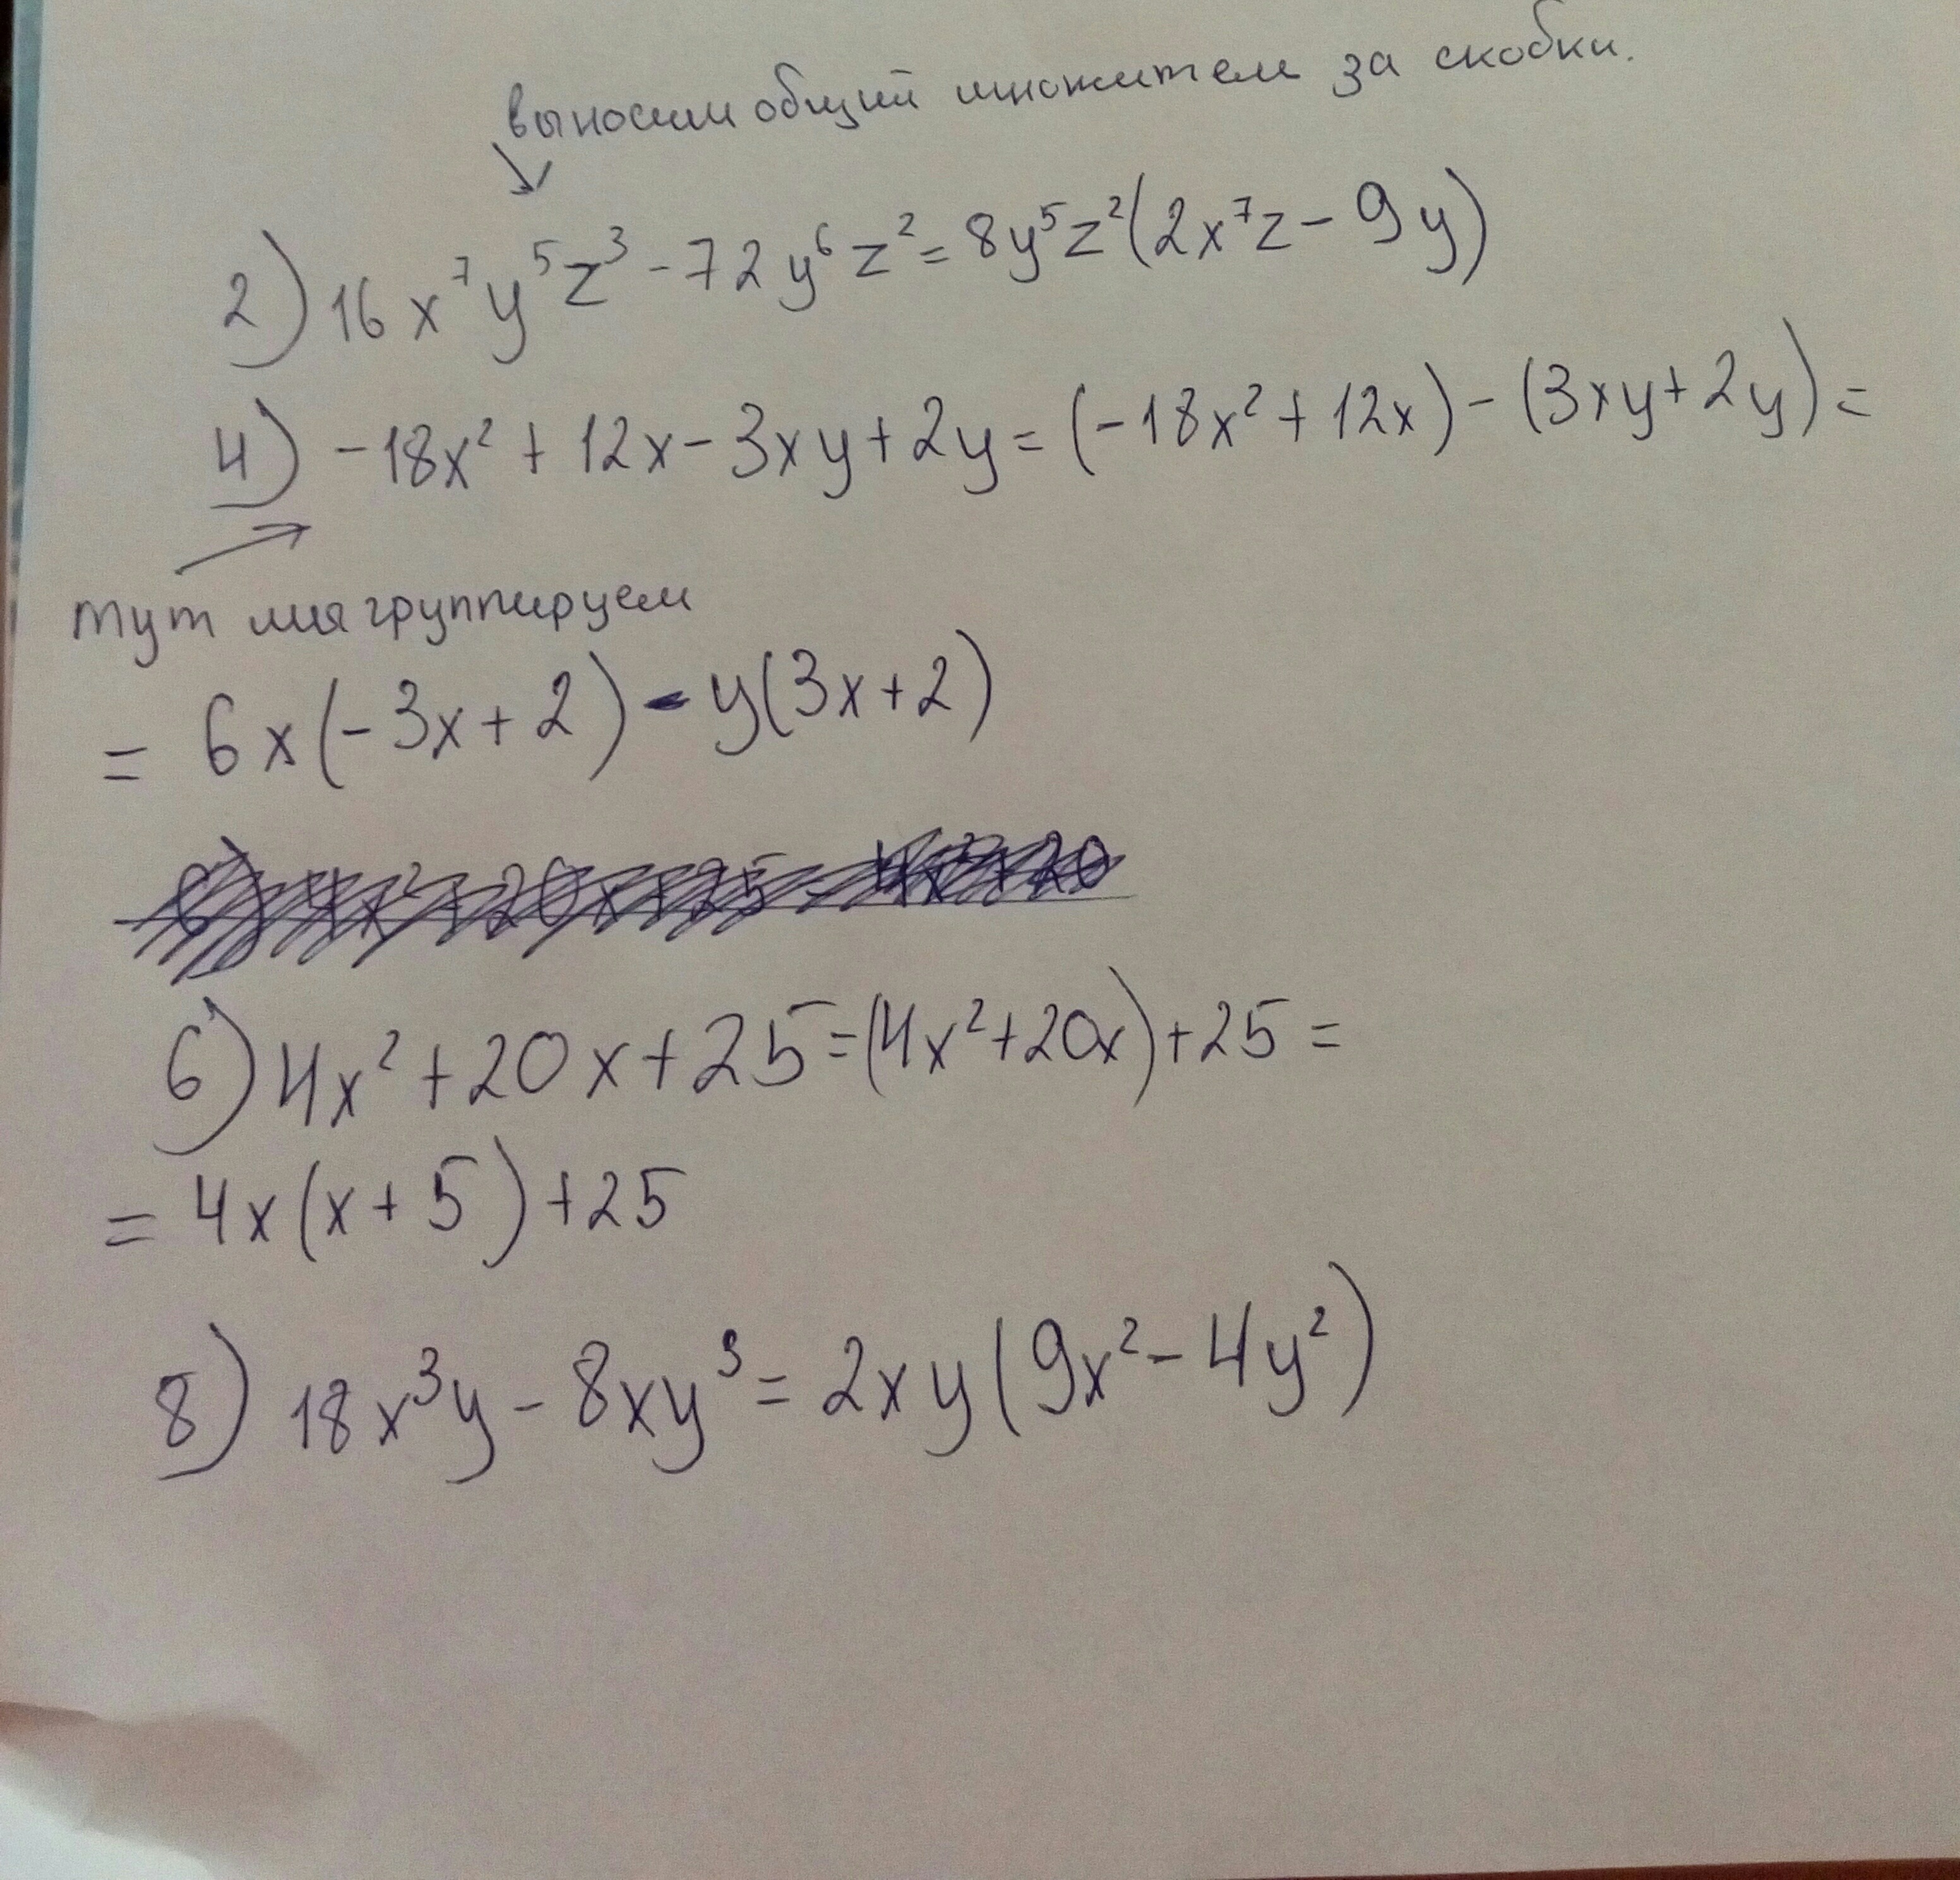 выносим общий множитель за скобки.
2) 16x⁷y⁵z³ - 72y⁶z² = 8y⁵z²(2x⁷z - 9y)
4) -18x² + 12x - 3xy + 2y = (-18x² + 12x) - (3xy + 2y) =
тут мы группируем
= 6x(-3x + 2) - y(3x + 2)
6) 4x² + 20x + 25 = (4x² + 20x) + 25 =
= 4x(x + 5) + 25
8) 18x³y - 8xy³ = 2xy(9x² - 4y²)